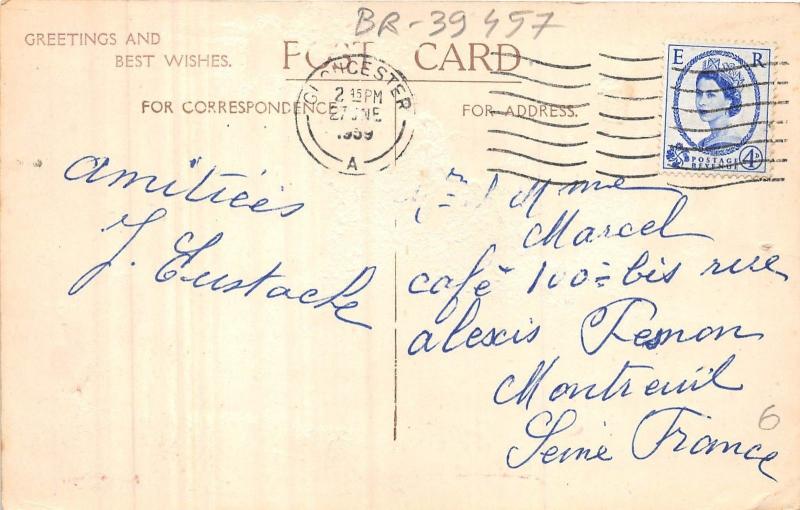 BR-39457
GREETINGS AND
BEST WISHES.
POST CARD
FOR CORRESPONDENCE
FOR ADDRESS.
GLOUCESTER
2 15 PM
27 JNE
1959
A
E R
POSTAGE
REVENUE
4D
amitiées
J. Eustache
Mme
Marcel
café 100= bis rue
alexis Pesnon
Montreuil
Seine France
6